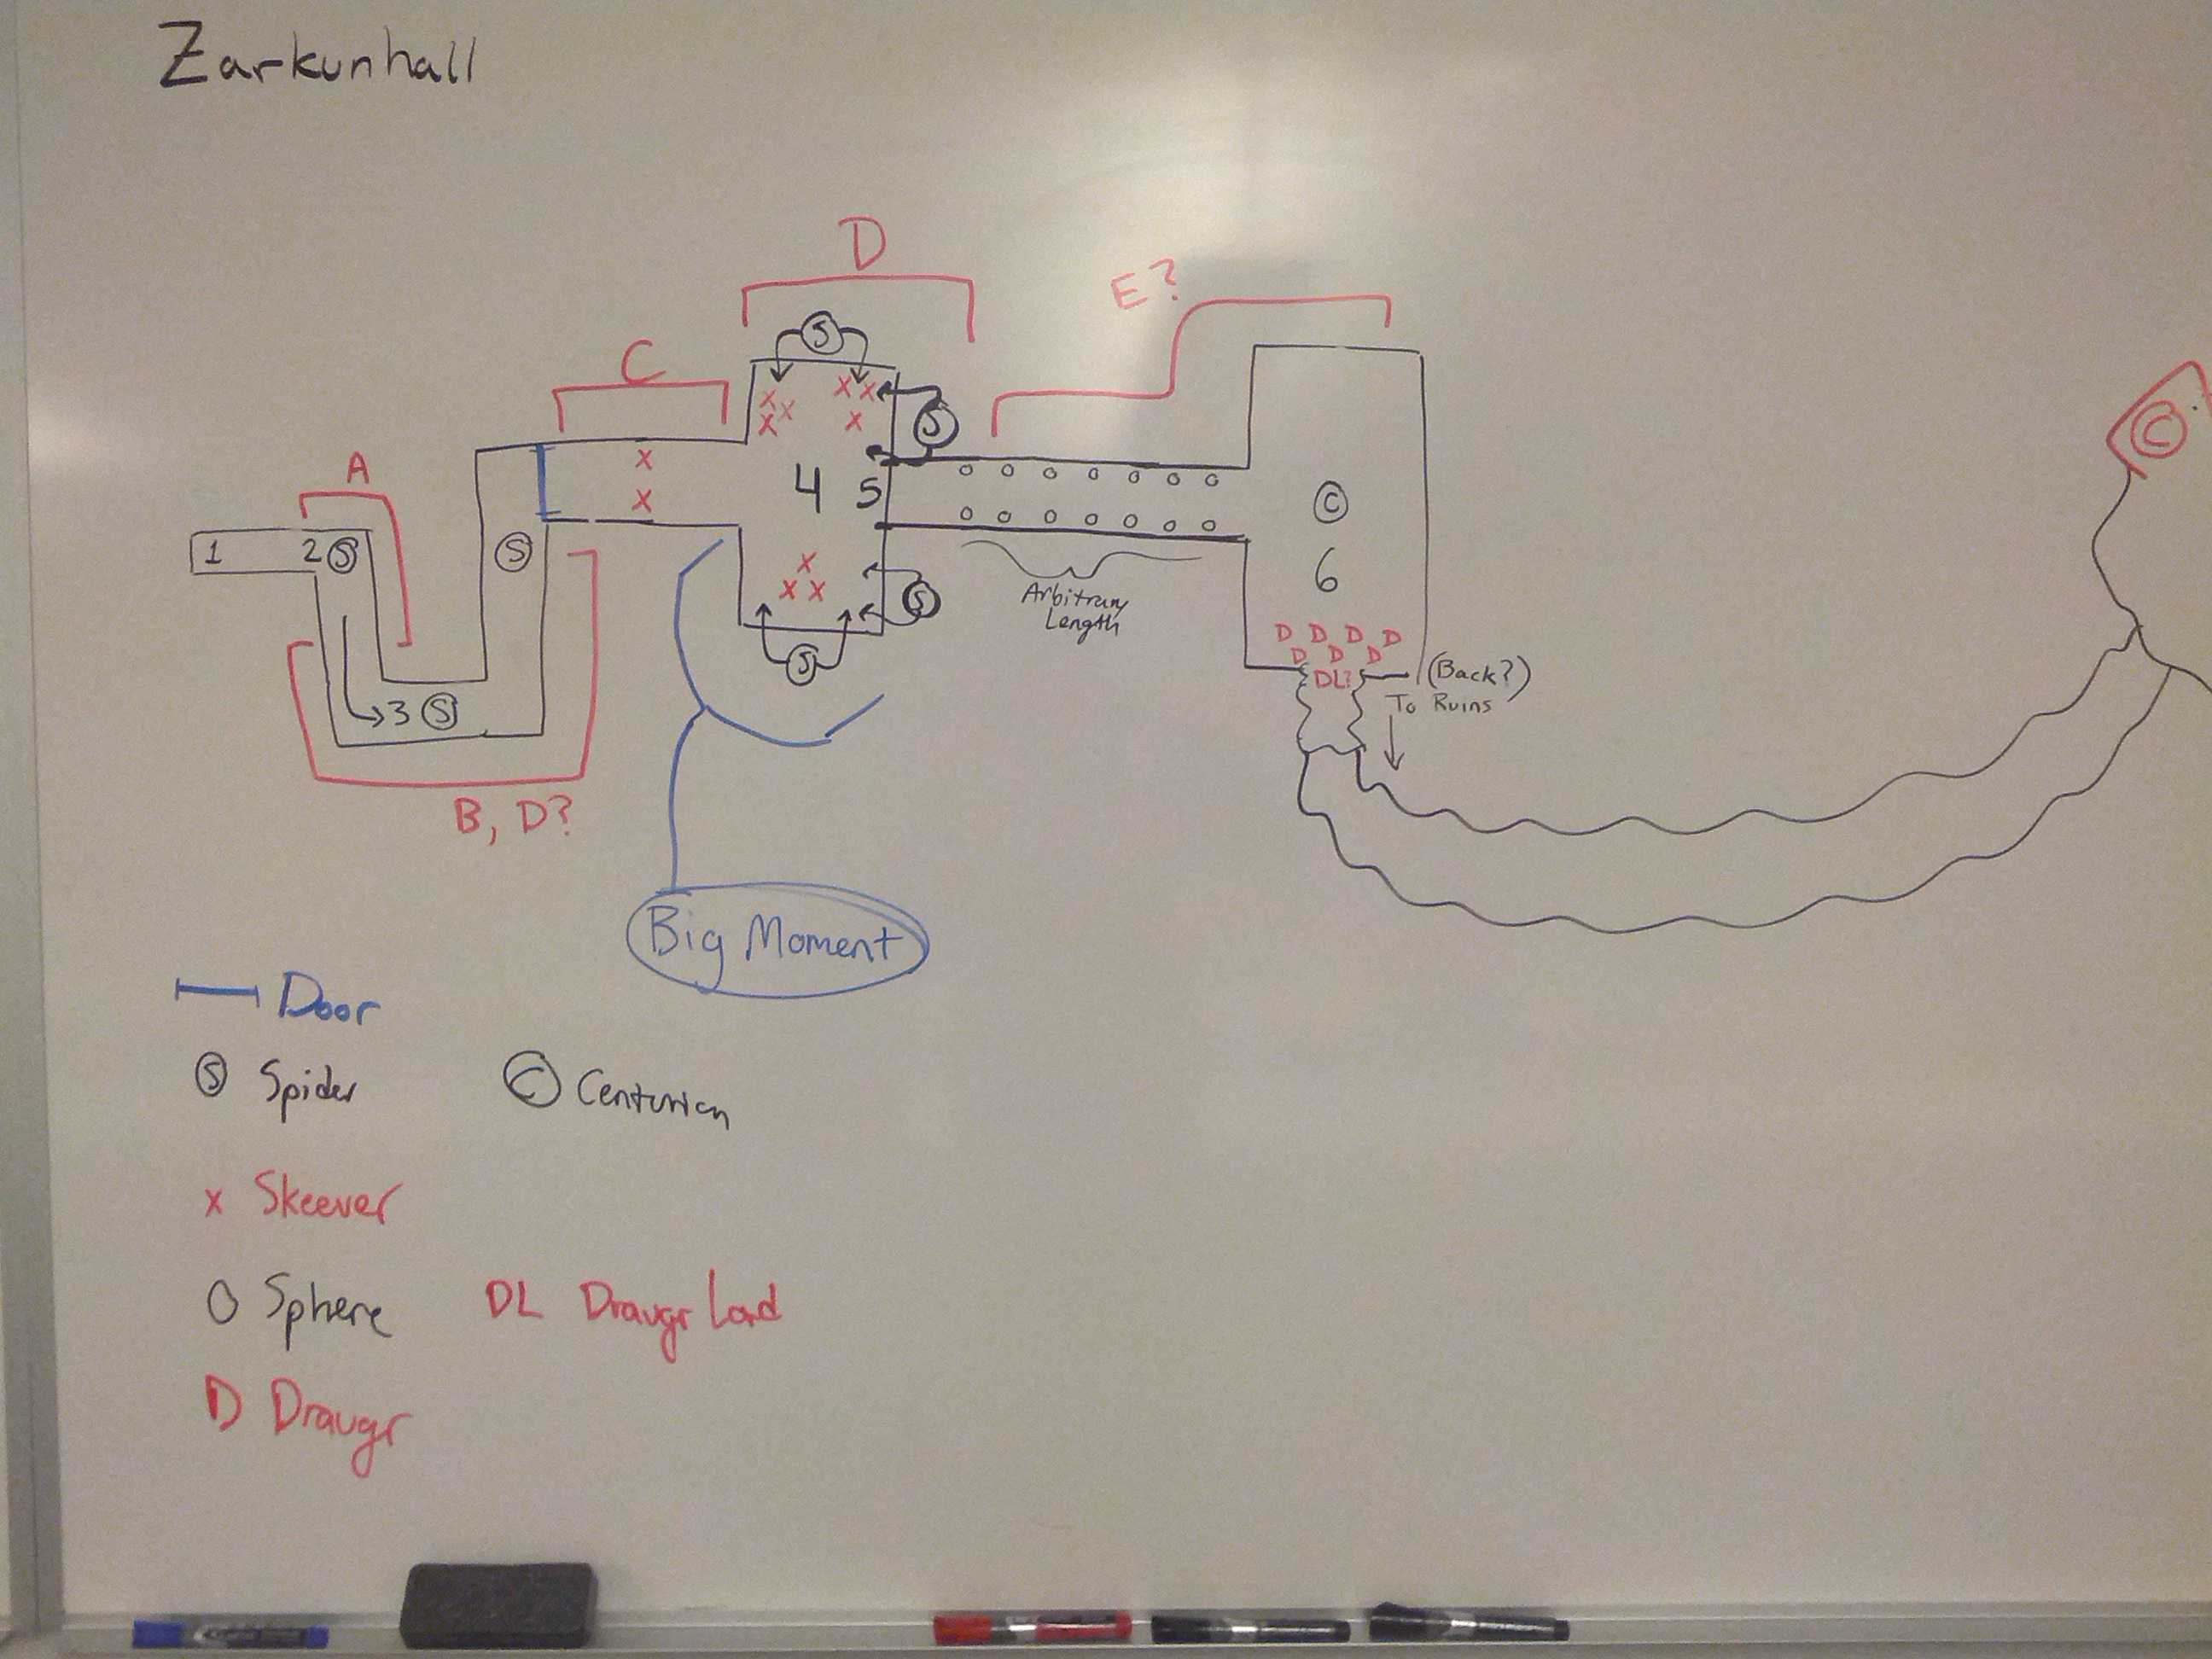 Zarkunhall
D
E?
S
C
X X
X X
X
X
S
A
X
X
4 5
C
1 2 S
S
6
X
X X
S
Arbitrary
Length
D D D D
D D D
DL?
(Back?)
To Ruins
S
3 S
B, D?
C
Big Moment
Door
S Spider
C Centurion
x Skeever
O Sphere
DL Draugr Lord
D Draugr